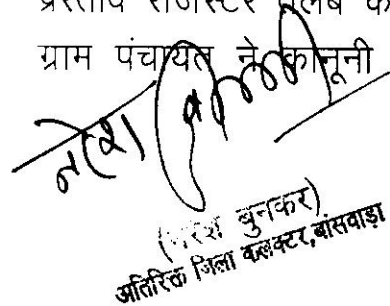 प्रस्ताव रजिस्टर तलब क
ग्राम पंचायत ने कानूनी
नरेश
(नरेश बुनकर)
अतिरिक्त जिला कलक्टर,बांसवाड़ा